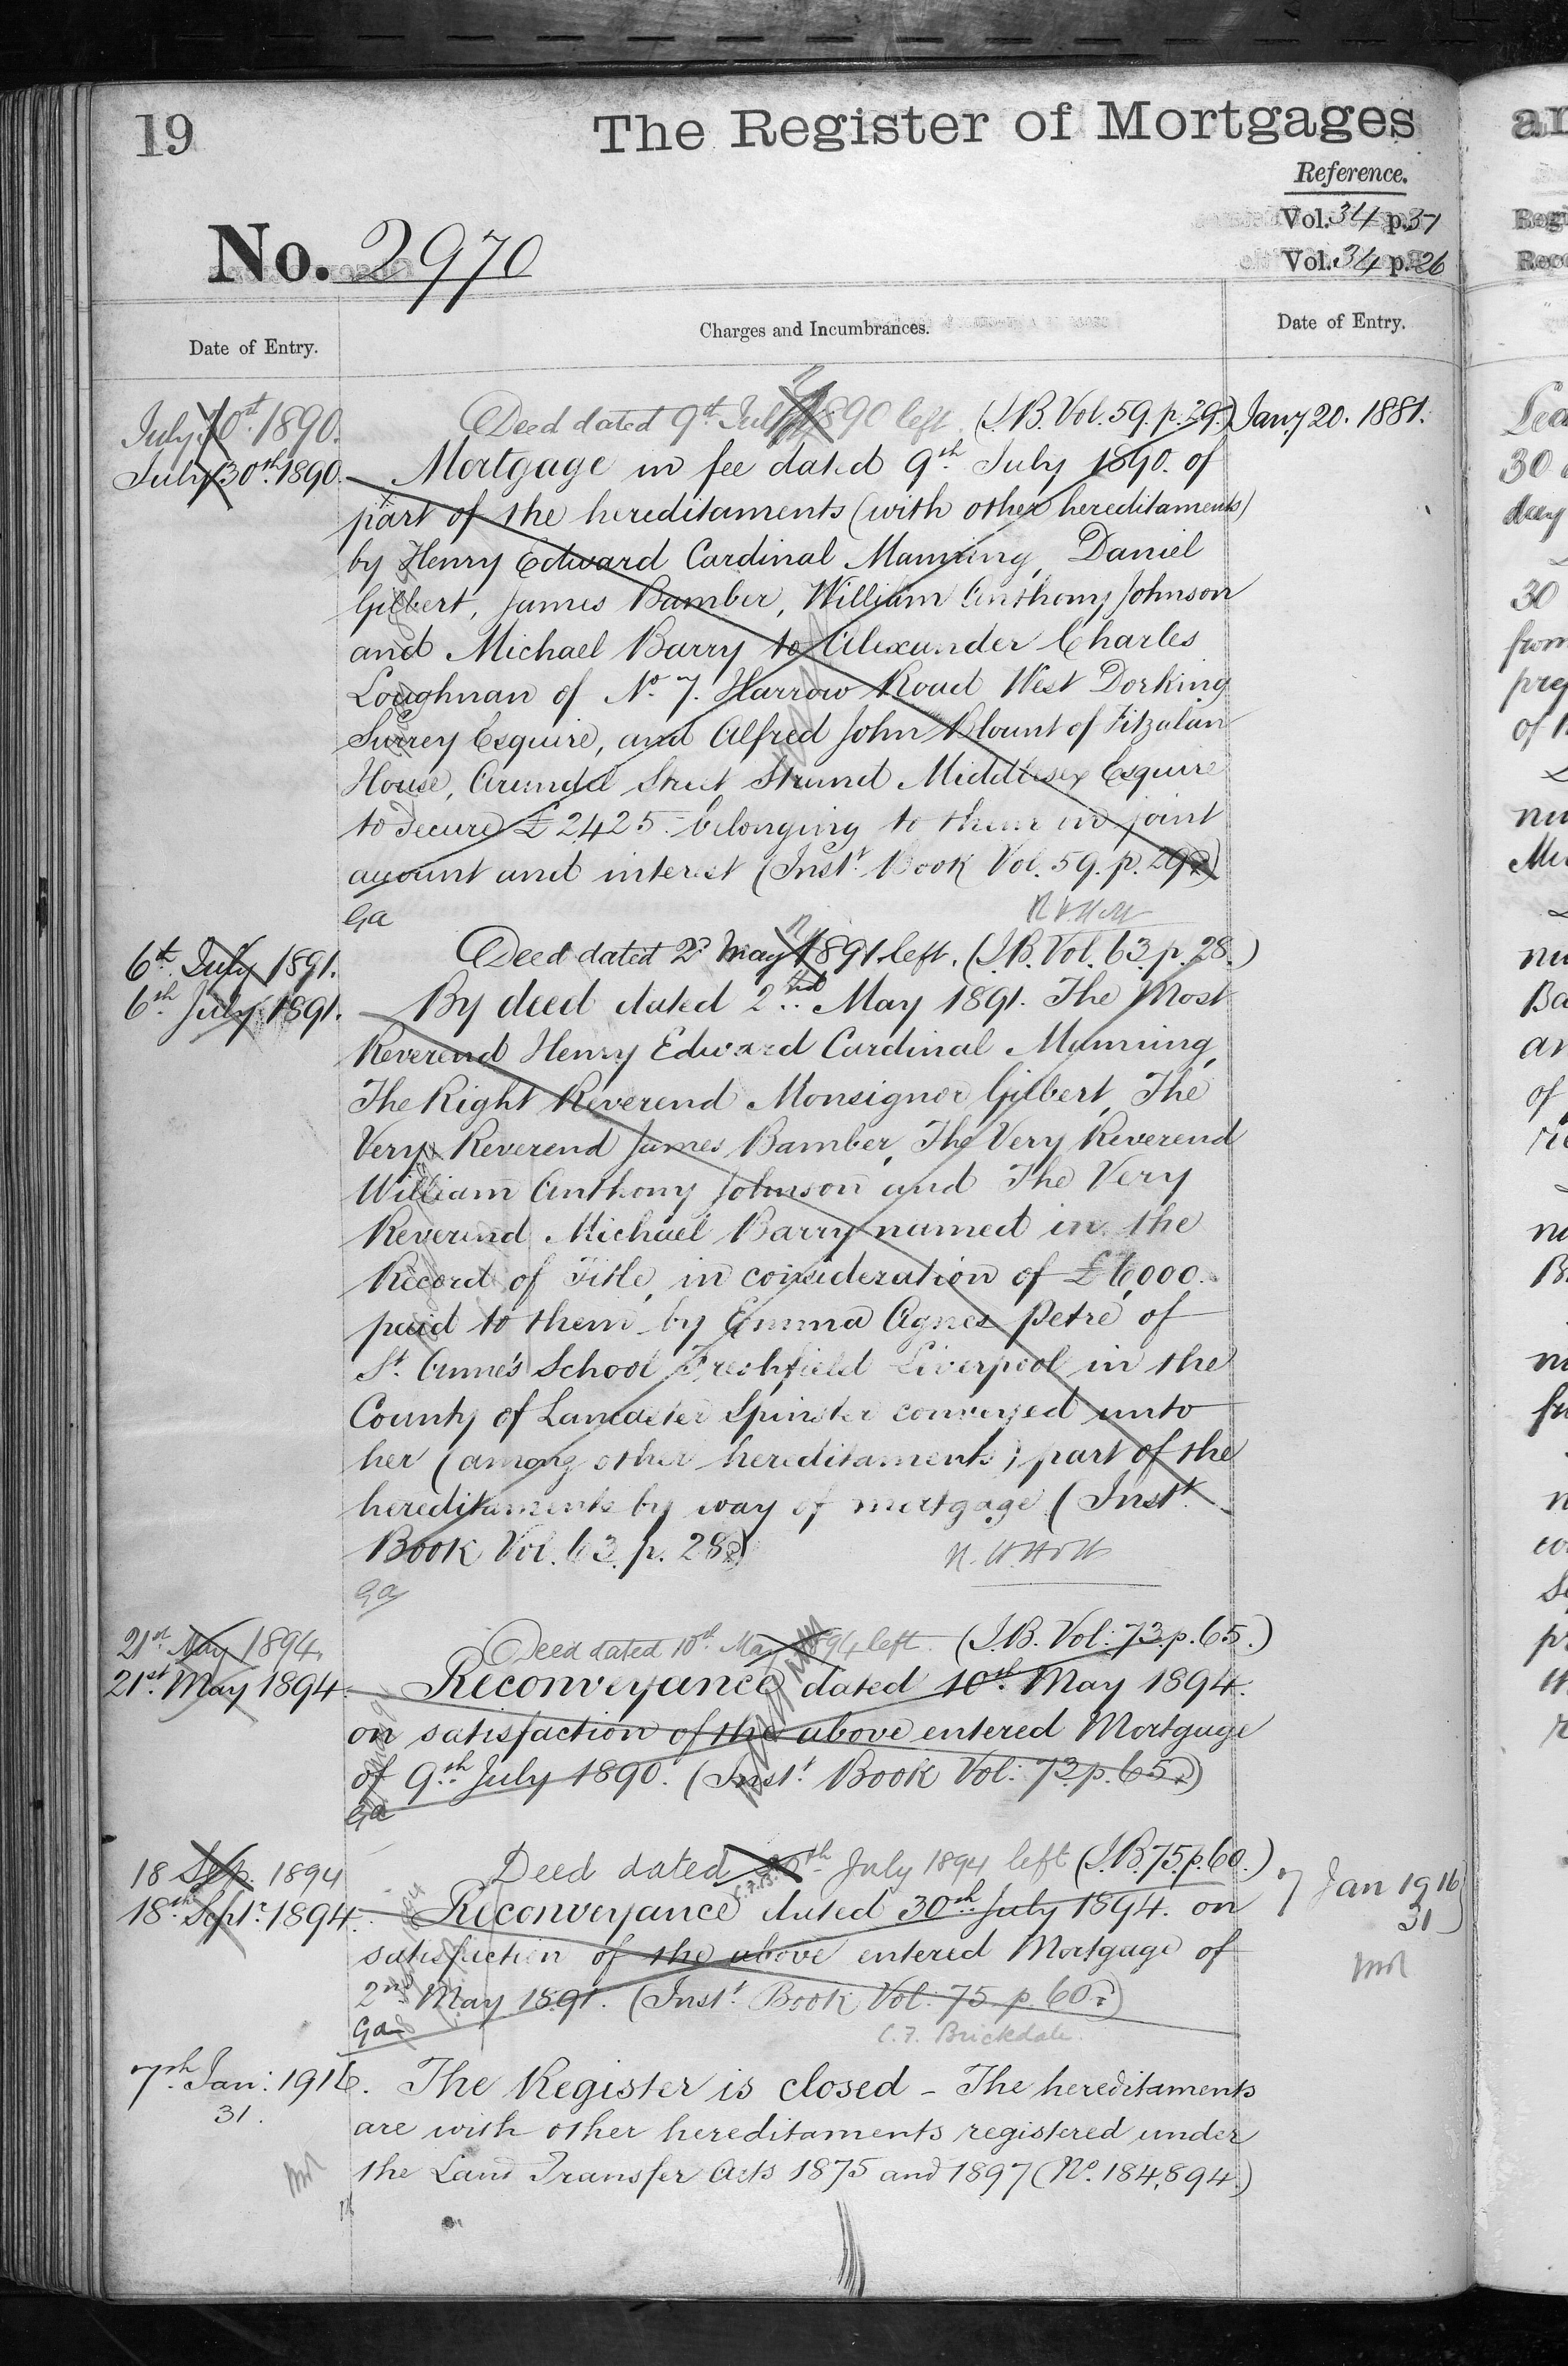 19
The Register of Mortgages
Reference.
Vol. 34 p. 37
No. 2970
Vol. 34 p. 26
Date of Entry.
Charges and Incumbrances.
Date of Entry.
July 10st 1890. Deed dated 9th July 1890 left. (I.B. Vol. 59. p. 29.) Jany 20. 1881.
July 30th 1890. Mortgage in fee dated 9th July 1890. of
part of the hereditaments (with other hereditaments)
by Henry Edward Cardinal Manning, Daniel
Gilbert, James Bamber, William Anthony Johnson
and Michael Barry to Alexander Charles
Loughnan of No. 7. Harrow Road West Dorking
Surrey Esquire, and Alfred John Blount of Fitzalan
House, Arundel Street Strand Middlesex Esquire
to secure £2425. belonging to them on joint
account and interest (Inst. Book Vol. 59. p. 29.)
Ga
6th July 1891. Deed dated 2d May 1891 left. (I.B. Vol. 63. p. 28.)
6th July 1891. By deed dated 2nd May 1891. The Most
Reverend Henry Edward Cardinal Manning,
The Right Reverend Monsignor Gilbert, The
Very Reverend James Bamber, The Very Reverend
William Anthony Johnson and The Very
Reverend Michael Barry named in the
Record of Title, in consideration of £6,000.
paid to them by Emma Agnes Petre of
St. Anne's School Freshfield Liverpool in the
County of Lancaster Spinster conveyed unto
her (among other hereditaments) part of the
hereditaments by way of mortgage (Inst.
Book Vol. 63. p. 28.)
R. H. Holt
Ga
21st May 1894. Deed dated 10th May 1894 left. (I.B. Vol: 73. p. 65.)
21st May 1894. Reconveyance dated 10th May 1894.
on satisfaction of the above entered Mortgage
of 9th July 1890. (Inst. Book Vol: 73 p. 65.)
Ga
18 Sep. 1894 Deed dated 30th July 1894 left (I.B. 75. p. 60.)
18th Septr. 1894. Reconveyance dated 30th July 1894. on
7 Jan 1916
31
satisfaction of the above entered Mortgage of
2nd May 1891. (Inst. Book Vol: 75 p. 60.)
Ga
C. F. Brickdale.
7th Jan: 1916. The Register is closed - The hereditaments
31.
are with other hereditaments registered under
the Land Transfer Acts 1875 and 1897 (No. 184,894.)